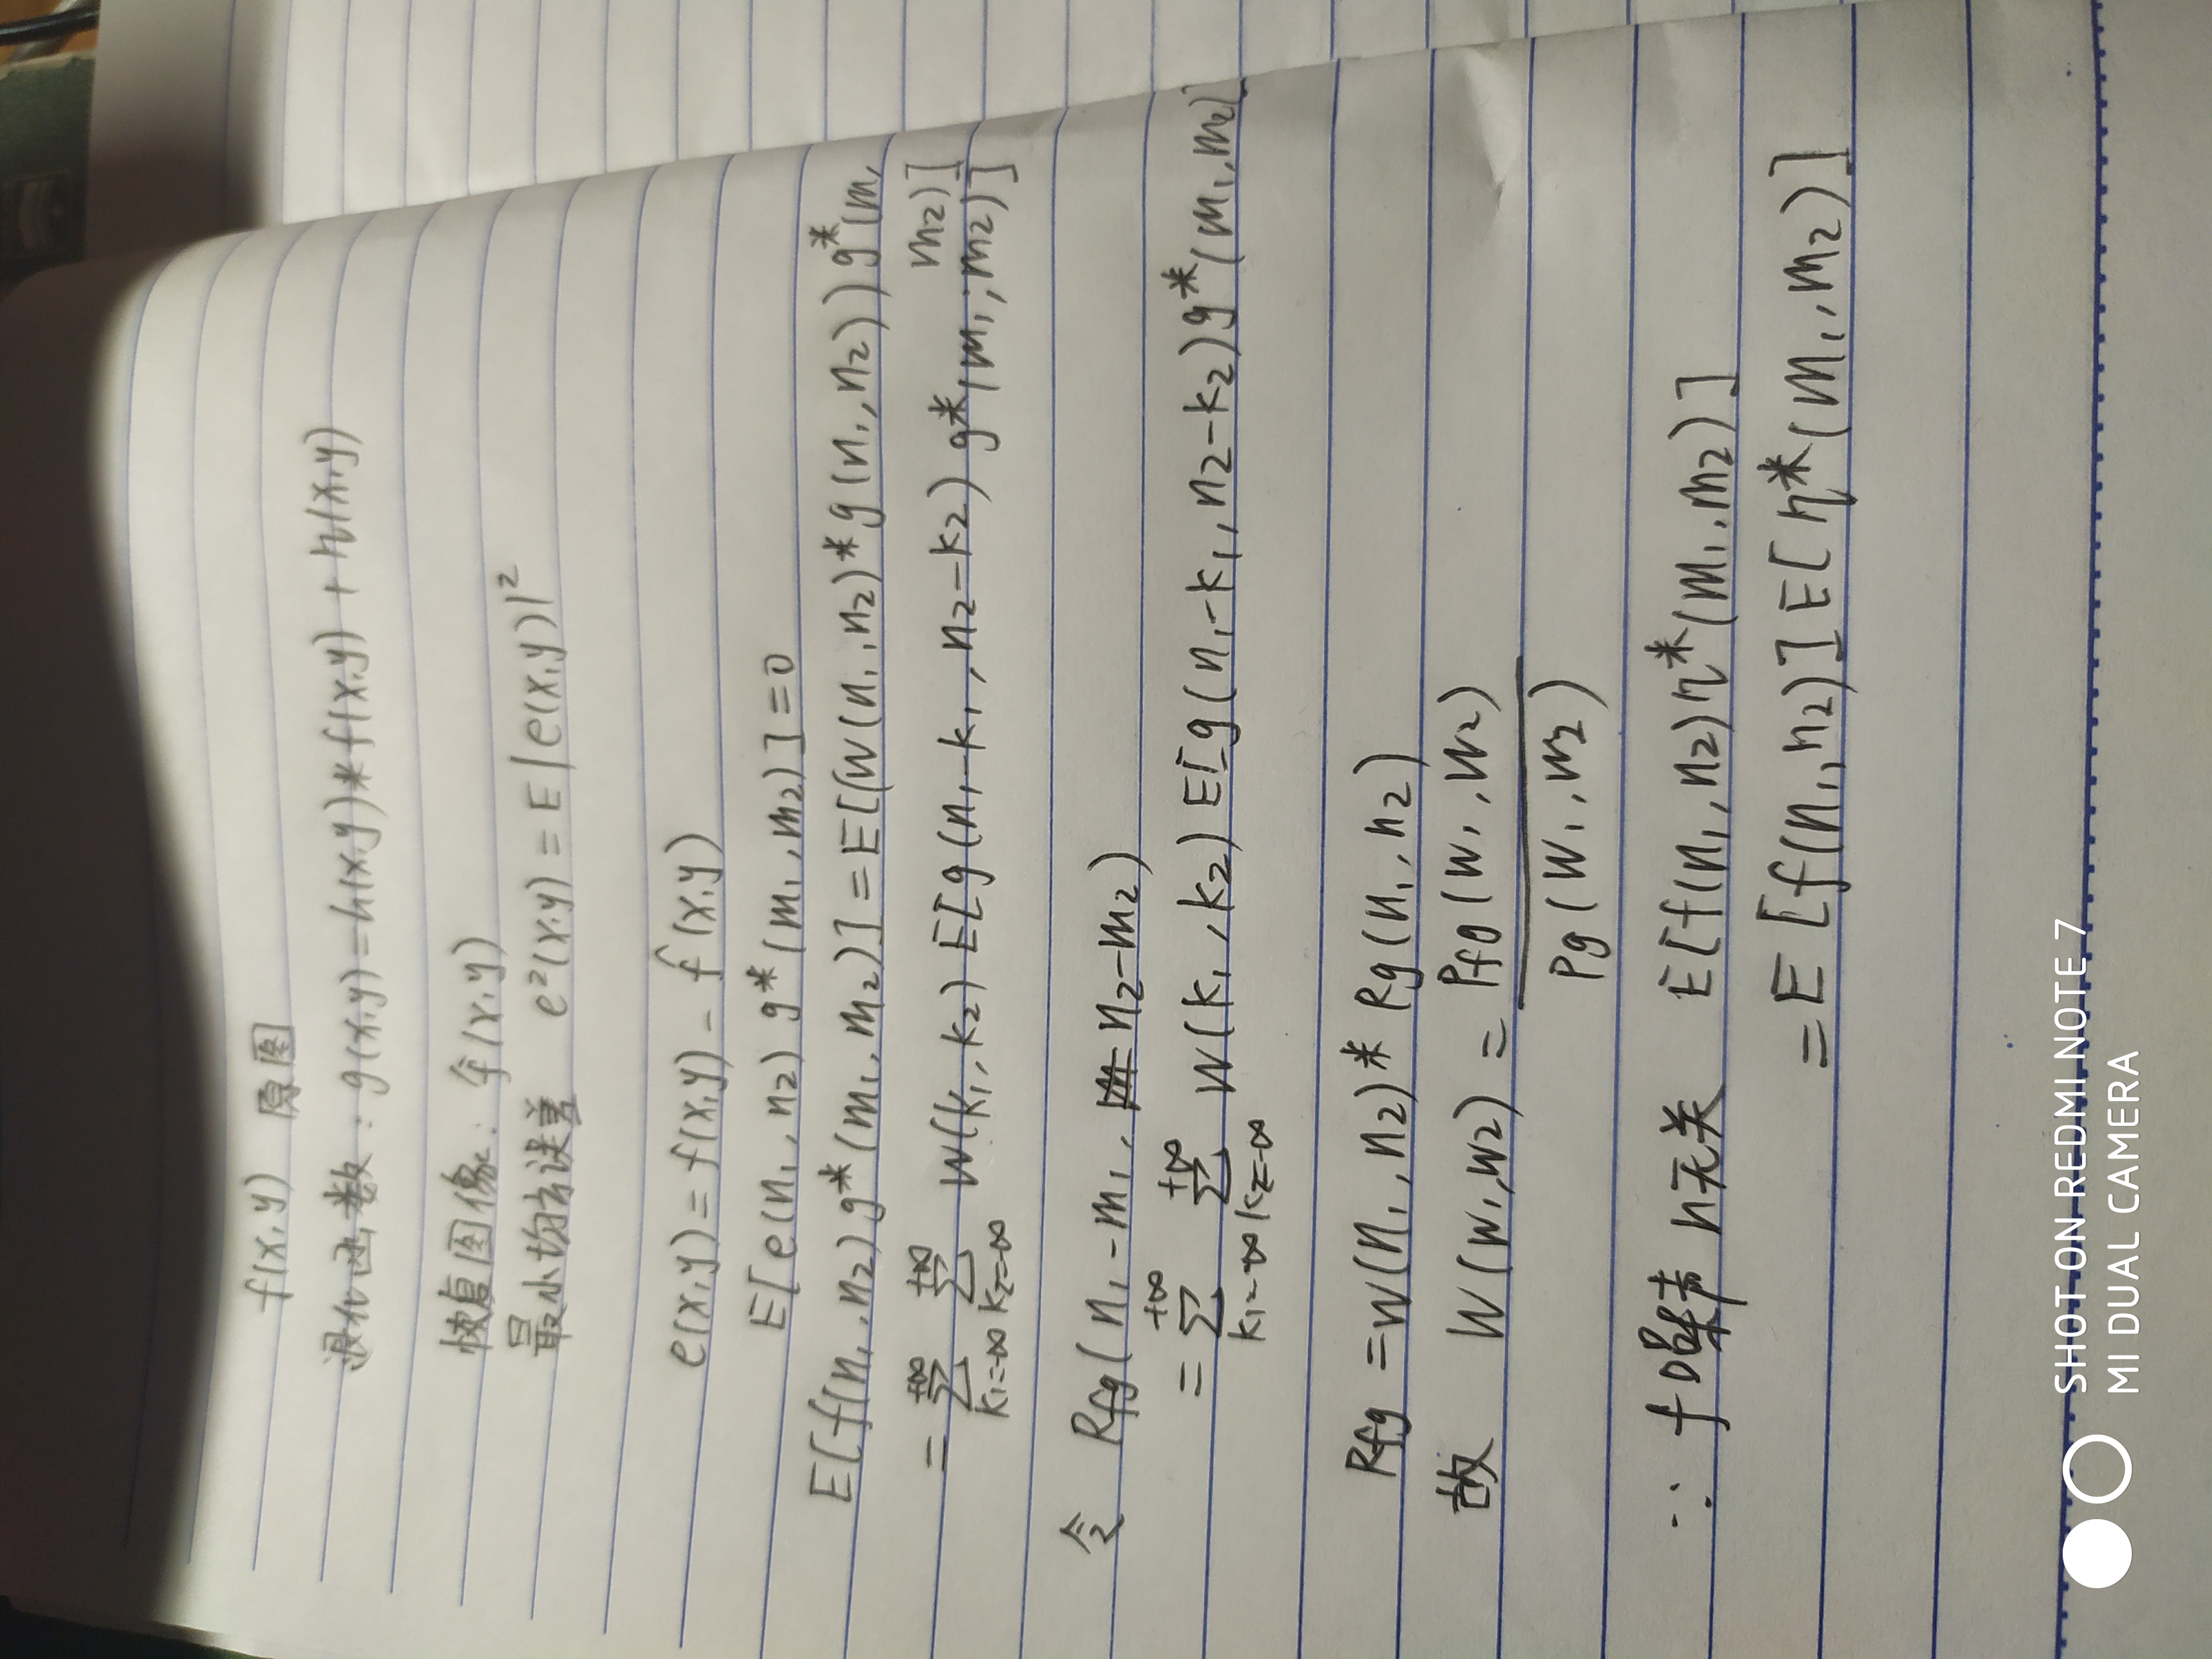 f(x,y) 原图
退化函数: g(x,y)=h(x,y)*f(x,y)+η(x,y)
恢复图像: f̂(x,y)
最小均方误差 e²(x,y)=E|e(x,y)|²
e(x,y)=f(x,y)-f̂(x,y)
E[e(n₁,n₂) g*(m₁,m₂)]=0
E[f(n₁,n₂)g*(m₁,m₂)]=E[(w(n₁,n₂)*g(n₁,n₂))g*(m₁
m₂)]
=∑_{k₁=-∞}^{+∞} ∑_{k₂=-∞}^{+∞} w(k₁,k₂) E[g(n₁-k₁,n₂-k₂) g*(m₁,m₂)]
令 Rfg(n₁-m₁, n₂-m₂)
=∑_{k₁=-∞}^{+∞} ∑_{k₂=-∞}^{+∞} w(k₁,k₂) E[g(n₁-k₁,n₂-k₂)g*(m₁,m₂)]
Rfg =w(n₁,n₂)* Rg(n₁,n₂)
故 W(w₁,w₂) = Pfg(w₁,w₂)
Pg(w₁,w₂)
∵ f 噪声 n无关 E[f(n₁,n₂)η*(m₁,m₂)]
=E[f(n₁,n₂)]E[η*(m₁,m₂)]
SHOT ON REDMI NOTE 7
MI DUAL CAMERA